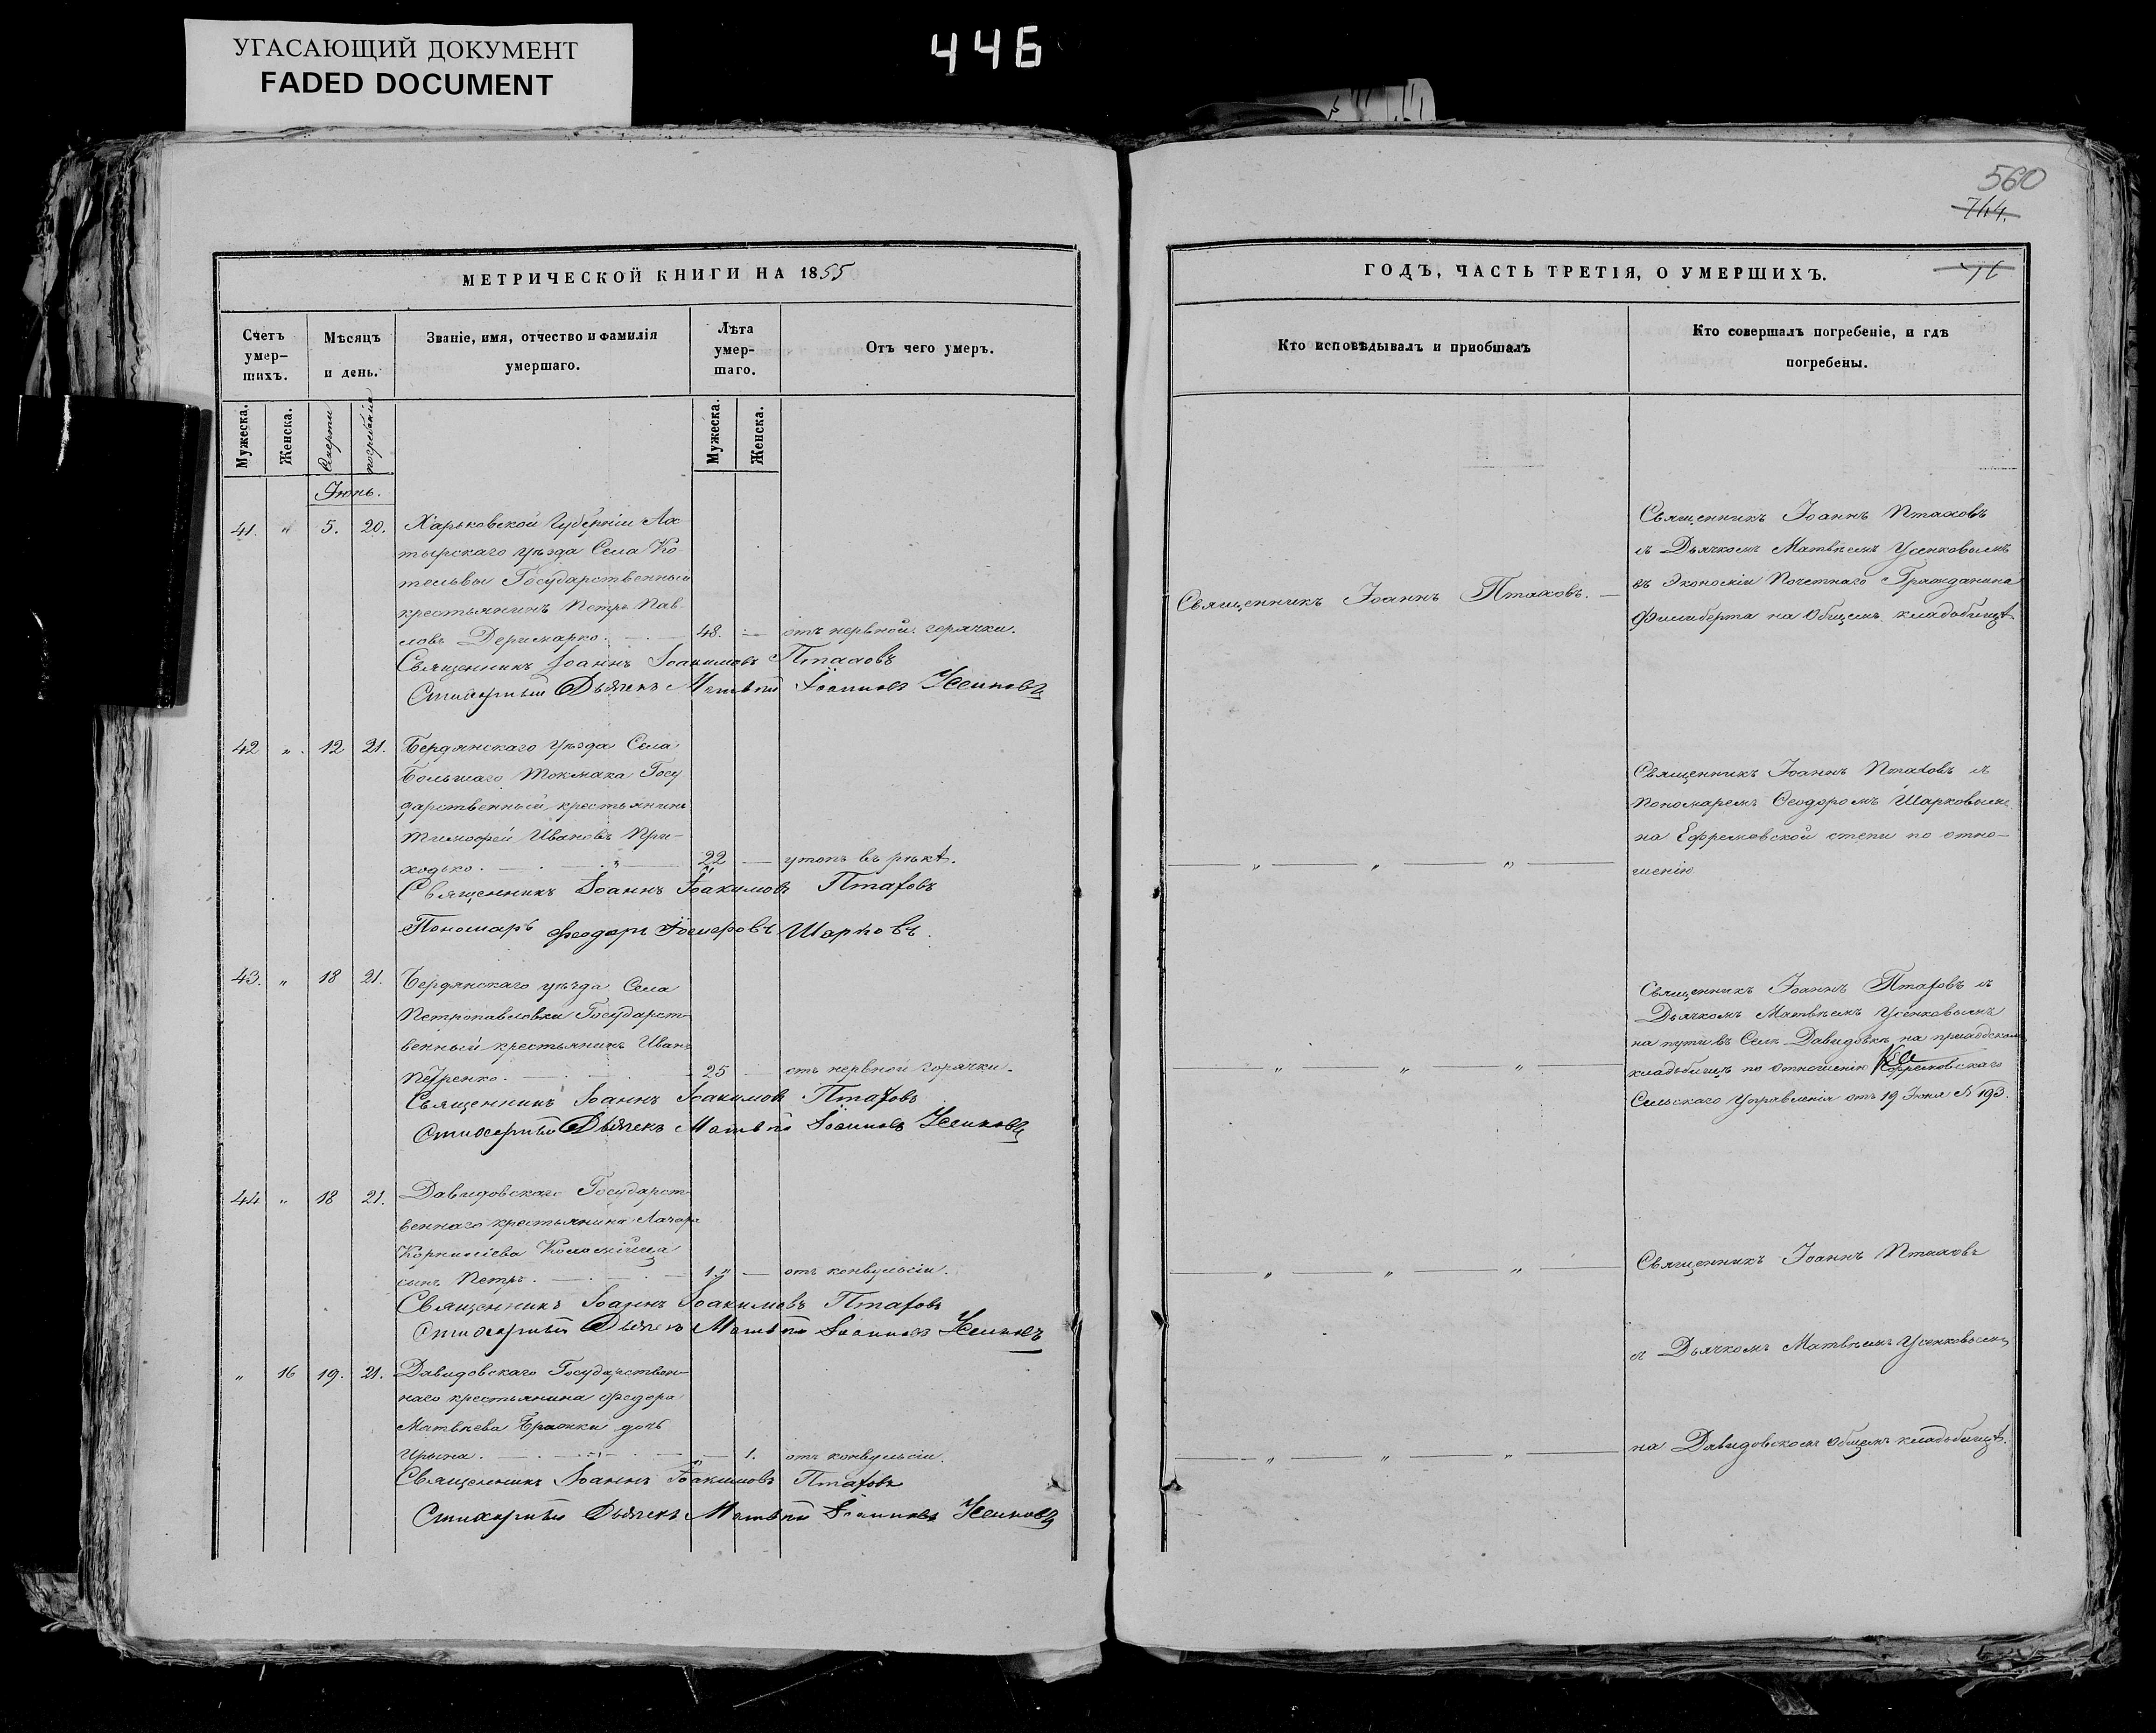 УГАСАЮЩИЙ ДОКУМЕНТ
FADED DOCUMENT
446
560
744.
МЕТРИЧЕСКОЙ КНИГИ НА 1855
Счетъ умер-шихъ.
Мѣсяцъ и день.
Званіе, имя, отчество и фамилія умершаго.
Лѣта умер-шаго.
Отъ чего умеръ.
Мужеска.
Женска.
Смерти
погребенія
Мужеска.
Женска.
Іюнь.
41. " 5. 20. Харьковской Губерніи Ах
тырскаго уѣзда Села Ко
тельвы Государственный
крестьянинъ Петръ Пав-
ловъ 48. — отъ нервной горячки.
Священникъ Іоаннъ Іоакимовъ Птаховъ
Стихарный Дьячекъ Матвѣй Іоанновъ Усенковъ
42 " 12 21. Бердянскаго уѣзда Села
Большаго Токмака Госу
дарственный крестьянинъ
Тимофей Ивановъ При-
ходько. 22 — утопъ въ рѣкѣ.
Священникъ Іоаннъ Іоакимовъ Птаховъ
Пономарь Феодоръ Шарковъ.
43. " 18 21. Бердянскаго уѣзда Села
Петропавловки Государст-
венный крестьянинъ Иванъ
Петренко. 25 — отъ нервной горячки.
Священникъ Іоаннъ Іоакимовъ Птаховъ
Стихарный Дьячекъ Матвѣй Іоанновъ Усенковъ
44 " 18 21. Давидовскаго Государст-
веннаго крестьянина Лазаря
Корниліева Коломійца
сынъ Петръ. 1. — отъ конвульсіи.
Священникъ Іоаннъ Іоакимовъ Птаховъ
Стихарный Дьячекъ Матвѣй Іоанновъ Усенковъ
" 16 19. 21. Давидовскаго Государствен-
наго крестьянина Федора
Матвѣева Бражки дочь
Ирина. — 1. отъ конвульсіи.
Священникъ Іоаннъ Іоакимовъ Птаховъ
Стихарный Дьячекъ Матвѣй Іоанновъ Усенковъ
ГОДЪ, ЧАСТЬ ТРЕТІЯ, О УМЕРШИХЪ.
Кто исповѣдывалъ и приобщалъ
Кто совершалъ погребеніе, и гдѣ
погребены.
Священникъ Іоаннъ Птаховъ. —
Священникъ Іоаннъ Птаховъ
съ Дьячкомъ Матвѣемъ Усенковымъ
въ Экономіи Почетнаго Гражданина
Филиберта на Общемъ кладобищѣ
— " — " — " —
Священникъ Іоаннъ Птаховъ съ
Пономаремъ Феодоромъ Шарковымъ
на Ефремовской степи по отно-
шенію
— " — " — " —
Священникъ Іоаннъ Птаховъ съ
Дьячкомъ Матвѣемъ Усенковымъ
на пути въ Селѣ Давидовкѣ на приходскомъ
кладбищѣ по отношенію Ефремовскаго
Сельскаго Управленія отъ 19 Іюня № 193.
— " — " — " —
Священникъ Іоаннъ Птаховъ
съ Дьячкомъ Матвѣемъ Усенковымъ
— " — " — " —
на Давидовскомъ общемъ кладбищѣ.